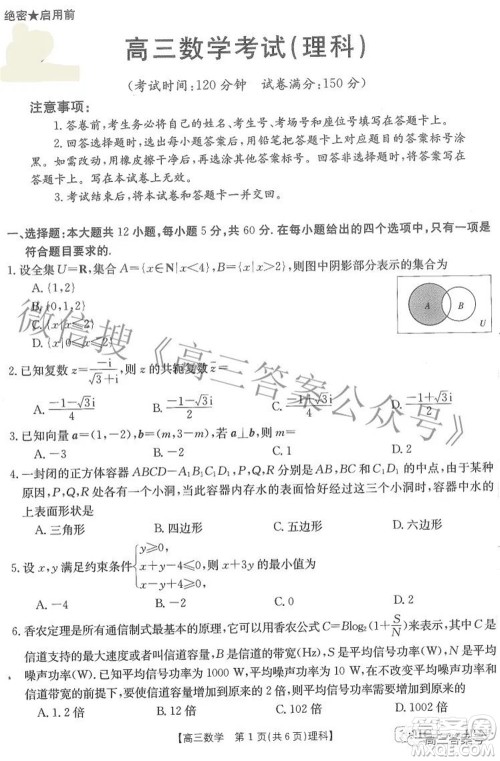 绝密★启用前
高三数学考试(理科)
(考试时间:120分钟 试卷满分:150分)
注意事项:
1.答卷前,考生务必将自己的姓名、考生号、考场号和座位号填写在答题卡上。
2.回答选择题时,选出每小题答案后,用铅笔把答题卡上对应题目的答案标号涂
黑。如需改动,用橡皮擦干净后,再选涂其他答案标号。回答非选择题时,将答案写在
答题卡上。写在本试卷上无效。
3.考试结束后,将本试卷和答题卡一并交回。
一、选择题:本大题共12小题,每小题5分,共60分.在每小题给出的四个选项中,只有一项是
符合题目要求的.
1.设全集U=R,集合A={x∈N|x<4},B={x|x>2},则图中阴影部分表示的集合为
A.{1,2}
B.{0,1,2}
C.{x|x≤2}
D.{x|0<x≤2}
A B U
2.已知复数z=-i/(√3+i),则z的共轭复数z̄=
A.(-1-√3i)/4 B.(-1-√3i)/2 C.(-1+√3i)/4 D.(-1+√3i)/2
3.已知向量a=(1,-2),b=(m,3-m),若a⊥b,则m=
A.-3 B.-2 C.1 D.2
4.一封闭的正方体容器ABCD-A₁B₁C₁D₁,P,Q,R分别是AB,BC和C₁D₁的中点,由于某种
原因,P,Q,R处各有一个小洞,当此容器内存水最多时,容器中水的上表面恰好经过这三个小洞,此时容器内存水的表面
上表面形状是
A.三角形 B.四边形 C.五边形 D.六边形
5.设x,y满足约束条件{y≥0, x+y-4≤0, x-y+4≥0,则x+3y的最小值为
A.-4 B.-2 C.0 D.2
6.香农定理是所有通信制式最基本的原理,它可以用香农公式C=Blog₂(1+S/N)来表示,其中C是
信道支持的最大速度或者叫信道容量,B是信道的带宽(Hz),S是平均信号功率(W),N是平均
噪声功率(W).已知平均信号功率为1000 W,平均噪声功率为10 W,在不改变平均噪声功率和
信道带宽的前提下,要使信道容量增加到原来的2倍,则平均信号功率需要增加到原来的
A.1.2倍 B.12倍 C.102倍 D.1002倍
【高三数学 第1页(共6页)理科】
微信搜《高三答案公众号》